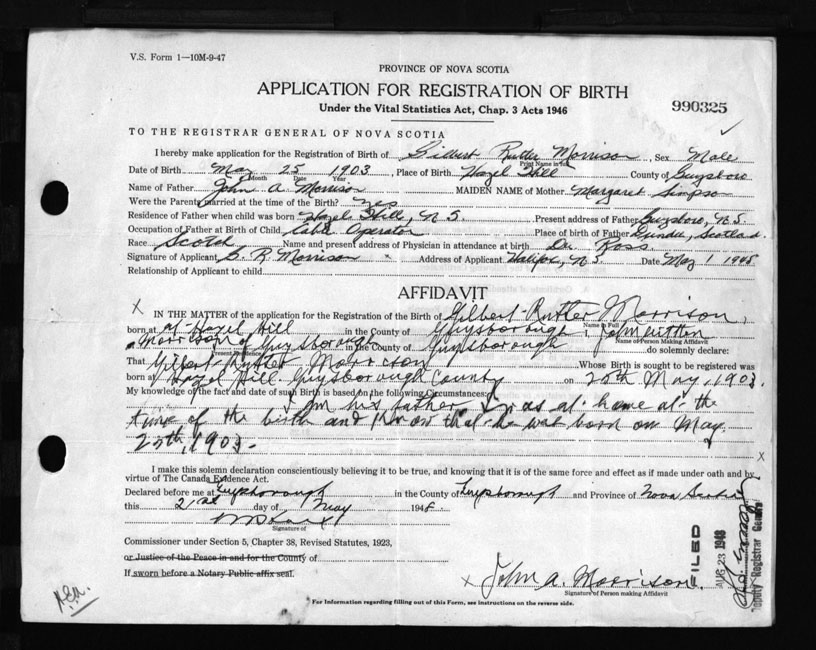 V.S. Form 1—10M-9-47
PROVINCE OF NOVA SCOTIA
APPLICATION FOR REGISTRATION OF BIRTH
Under the Vital Statistics Act, Chap. 3 Acts 1946
990325
TO THE REGISTRAR GENERAL OF NOVA SCOTIA
I hereby make application for the Registration of Birth of Gilbert Rutter Morrison, Sex Male
Print Name in full
Date of Birth May 25 1903, Place of Birth Hazel Hill County of Guysboro
Month Date Year
Name of Father John A. Morrison MAIDEN NAME of Mother Margaret Simpson
Were the Parents married at the time of the Birth? Yes
Residence of Father when child was born Hazel Hill, N S. Present address of Father Guysboro, N S.
Occupation of Father at Birth of Child Cable Operator Place of birth of Father Dundee, Scotland.
Race Scotch Name and present address of Physician in attendance at birth Dr. Ross
Signature of Applicant G. R. Morrison x Address of Applicant Halifax, N S. Date May 1 1948
Relationship of Applicant to child
AFFIDAVIT
X IN THE MATTER of the application for the Registration of the Birth of Gilbert-Rutter Morrison,
Name in Full
born at at Hazel Hill in the County of Guysborough I, John
Name of Person Making Affidavit
Morrison of Guysborough in the County of Guysborough do solemnly declare:
Present Residence
That Gilbert Rutter Morrison Whose Birth is sought to be registered was
born at Hazel Hill Guysborough County on 25th May, 1903.
My knowledge of the fact and date of such Birth is based on the following Circumstances:
I am his father. I was at home at the
time of the birth and know that he was born on May
25th, 1903.
X
I make this solemn declaration conscientiously believing it to be true, and knowing that it is of the same force and effect as if made under oath and by
virtue of The Canada Evidence Act.
Declared before me at Guysborough in the County of Guysborough and Province of Nova Scotia
this 2nd day of May 1948.
Signature of
Commissioner under Section 5, Chapter 38, Revised Statutes, 1923,
or Justice of the Peace in and for the County of
If sworn before a Notary Public affix seal.
x John A. Morrison.
Signature of Person making Affidavit
For Information regarding filling out of this Form, see instructions on the reverse side.
FILED
AUG 23 1948
Deputy Registrar General